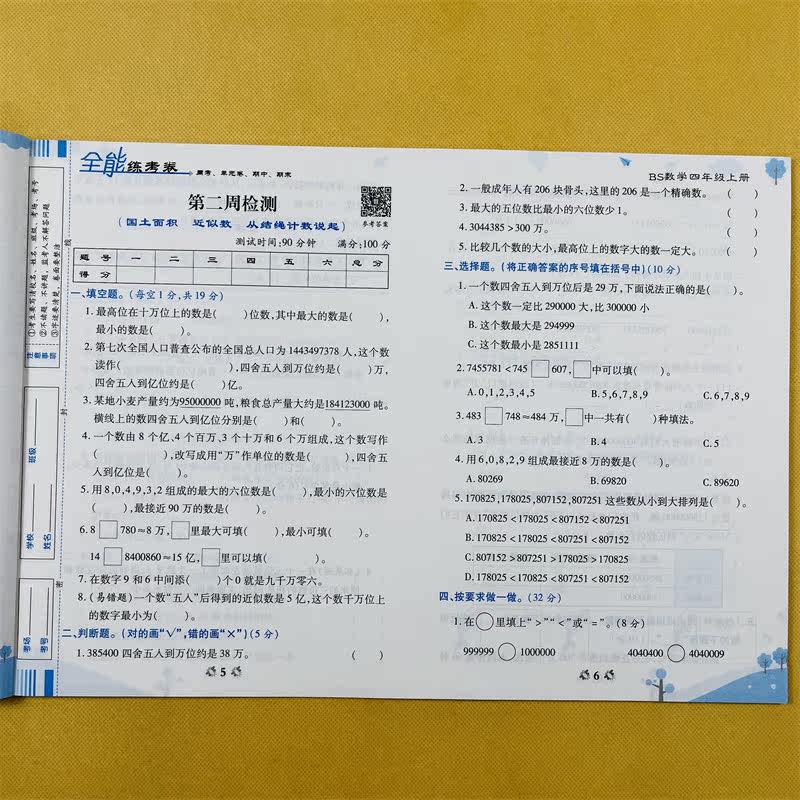 全能练考卷 周考、单元卷、期中、期末
第二周检测
参考答案
(国土面积 近似数 从结绳计数说起)
测试时间:90分钟 满分:100分
题号 一 二 三 四 五 六 总分
得分
一、填空题。(每空1分,共19分)
1.最高位在十万位上的数是( )位数,其中最大的数是( ),
最小的数是( )。
2.第七次全国人口普查公布的全国总人口为1443497378人,这个数
读作( ),四舍五入到万位约是( )万,
四舍五入到亿位约是( )亿。
3.某地小麦产量约为95000000吨,粮食总产量大约是184123000吨。
横线上的数四舍五入到亿位分别是( )和( )。
4.一个数由8个亿、4个百万、3个十万和6个万组成,这个数写作
( ),改写成用“万”作单位的数是( ),四舍五
入到亿位是( )。
5.用8,0,4,9,3,2组成的最大的六位数是( ),最小的六位数是
( ),最接近90万的数是( )。
6.8□780≈8万,□里最大可填( ),最小可填( )。
14□8400860≈15亿,□里可以填( )。
7.在数字9和6中间添( )个0就是九千万零六。
8.(易错题)一个数“五入”后得到的近似数是5亿,这个数千万位上
的数字最小为( )。
二、判断题。(对的画“√”,错的画“×”)(5分)
1.385400四舍五入到万位约是38万。 ( )
5
注意事项
①考生要写清校名、姓名、班级、考场、考号
②不读题、不讲题,监考人不解答问题
③字迹要清楚,卷面要整洁
线
封
密
学校
班级
姓名
考场
考号
BS数学四年级上册
2.一般成年人有206块骨头,这里的206是一个精确数。 ( )
3.最大的五位数比最小的六位数少1。 ( )
4.3044385>300万。 ( )
5.比较几个数的大小,最高位上的数字大的数一定大。 ( )
三、选择题。(将正确答案的序号填在括号中)(10分)
1.一个数四舍五入到万位后是29万,下面说法正确的是( )。
A.这个数一定比290000大,比300000小
B.这个数最大是294999
C.这个数最小是2851111
2.7455781<745□607,□中可以填( )。
A.0,1,2,3,4,5 B.5,6,7,8,9 C.6,7,8,9
3.483□748≈484万,□中一共有( )种填法。
A.3 B.4 C.5
4.用6,0,8,2,9组成最接近8万的数是( )。
A.80269 B.69820 C.89620
5.170825,178025,807152,807251这些数从小到大排列是( )。
A.170825<178025<807152<807251
B.170825<178025<807251<807152
C.807152>807251>178025>170825
D.178025<170825<807251<807152
四、按要求做一做。(32分)
1.在○里填上“>”“<”或“=”。(8分)
999999○1000000 4040400○4040009
6